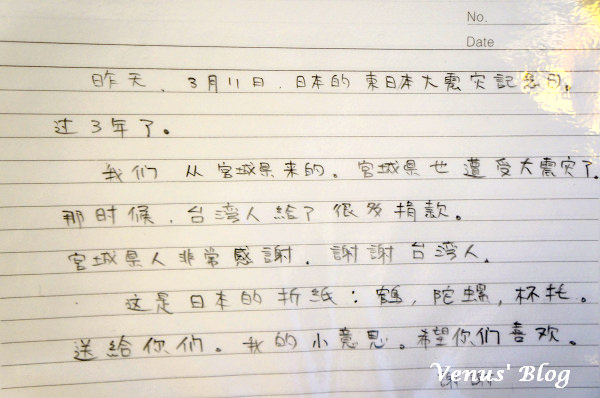 No.
Date
昨天，3月11日，日本的東日本大震災記念日。
过3年了。
我们从宮城県来的。宮城県也遭受大震灾了。
那时候，台湾人給了很多捐款。
宮城県人非常感謝。謝謝台湾人。
这是日本的折紙：鶴，陀螺，杯托。
送給你们。我的小意思。希望你们喜欢。
謝謝
Venus' Blog